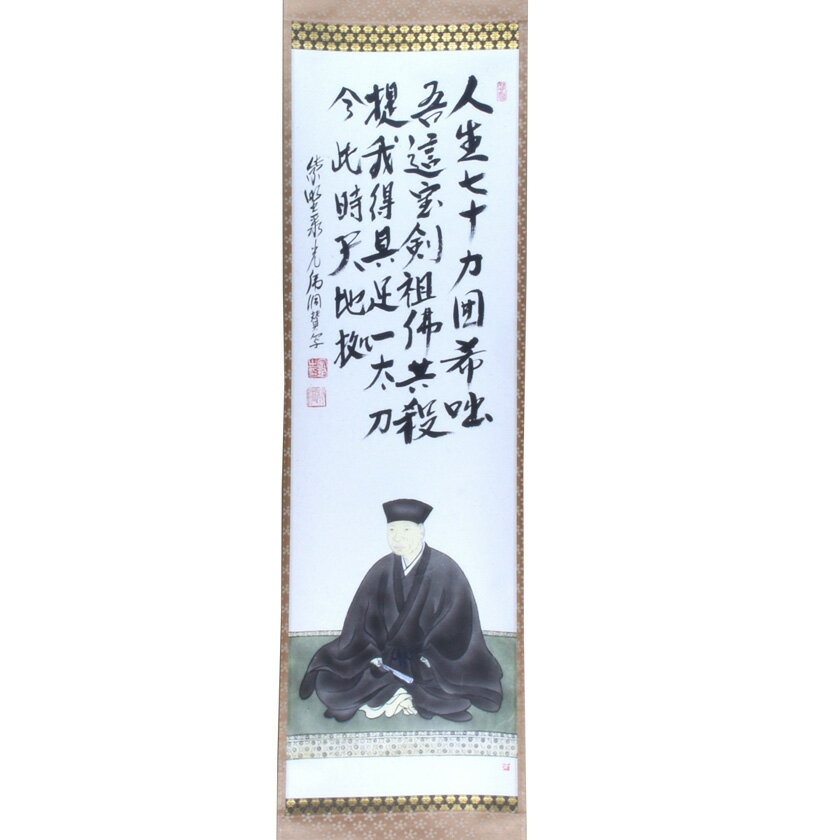 人生七十力囲希咄
吾這宝剣祖佛共殺
提我得具足一太刀
今此時天地抛